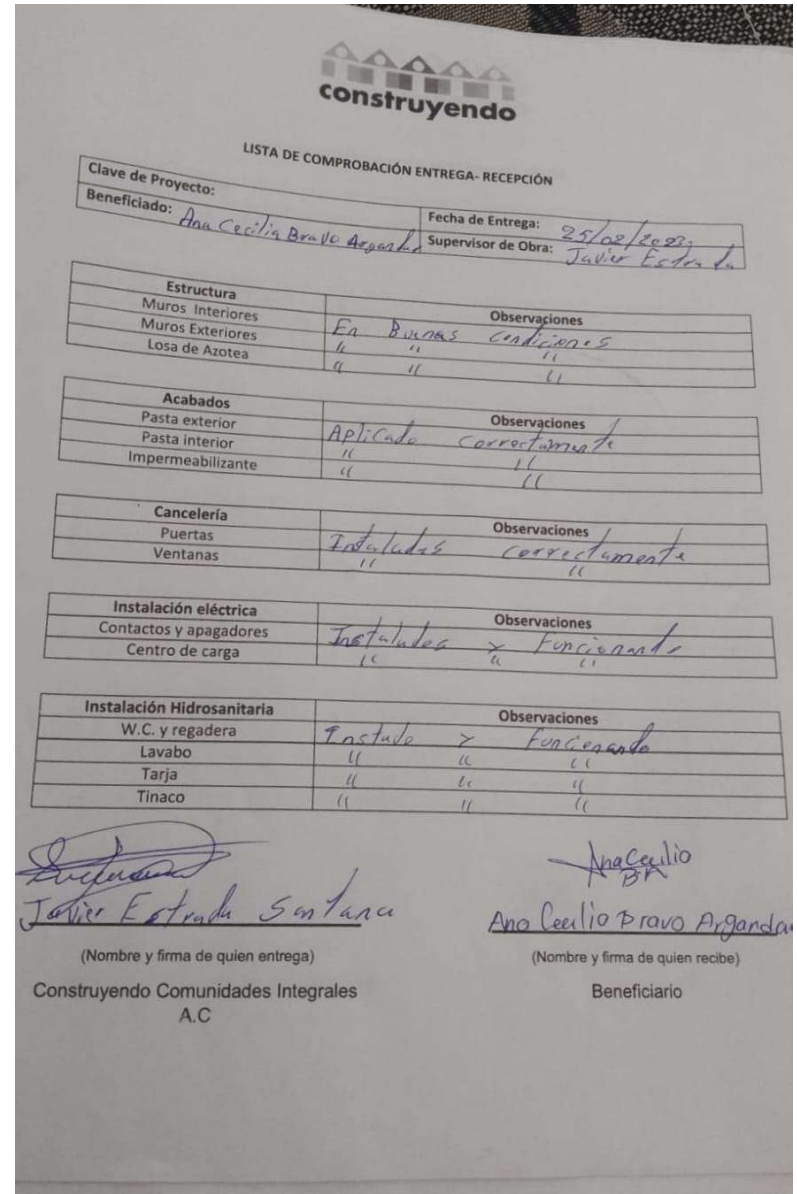 construyendo
LISTA DE COMPROBACIÓN ENTREGA- RECEPCIÓN
Clave de Proyecto:
Fecha de Entrega: 25/02/2023
Beneficiado: Ana Cecilia Bravo Argandar
Supervisor de Obra: Javier Estrada
Estructura Observaciones
Muros Interiores En Buenas condiciones
Muros Exteriores " " "
Losa de Azotea " " "
Acabados Observaciones
Pasta exterior Aplicado correctamente
Pasta interior " "
Impermeabilizante " "
Cancelería Observaciones
Puertas Intaladas correctamente
Ventanas " "
Instalación eléctrica Observaciones
Contactos y apagadores Instalados y Funcionando
Centro de carga " " "
Instalación Hidrosanitaria Observaciones
W.C. y regadera Instado y Funcionando
Lavabo " " "
Tarja " " "
Tinaco " " "
Javier Estrada Santana
Ana Cecilia BA
Ana Cecilia Bravo Argandar
(Nombre y firma de quien entrega)
(Nombre y firma de quien recibe)
Construyendo Comunidades Integrales
A.C
Beneficiario